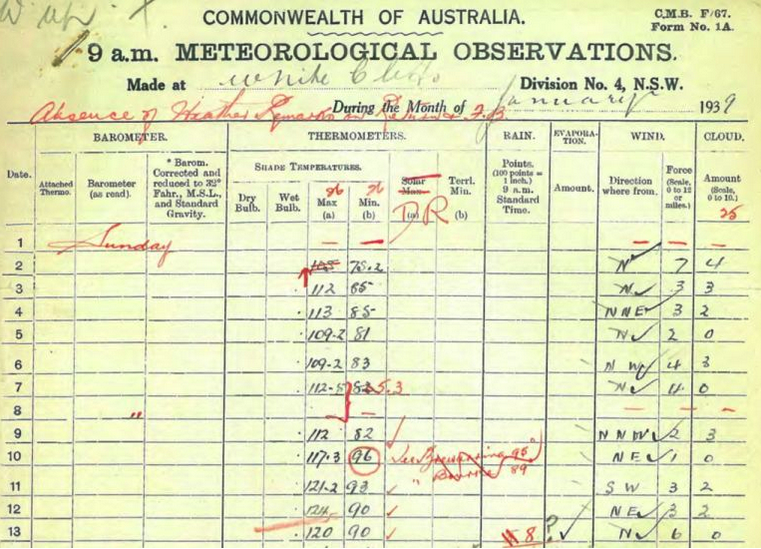 COMMONWEALTH OF AUSTRALIA.
C.M.B. F/67.
Form No. 1A.
9 a.m. METEOROLOGICAL OBSERVATIONS.
Made at White Cliffs Division No. 4, N.S.W.
During the Month of January 1939
Absence of Weather Remarks in
BAROMETER. THERMOMETERS. RAIN. EVAPORATION. WIND. CLOUD.
Date. Attached Thermo. Barometer (as read). * Barom. Corrected and reduced to 32° Fahr., M.S.L., and Standard Gravity. SHADE TEMPERATURES. Dry Bulb. Wet Bulb. Max (a) Min. (b) Solar Max. (a) Terrl. Min. (b) Points. (100 points = 1 inch.) 9 a.m. Standard Time. Amount. Direction where from. Force (Scale, 0 to 12 or miles.) Amount (Scale, 0 to 10.)
26 26 DR 25
1 Sunday — — — — —
2 105 75.2 N 7 4
3 112 85 N 3 3
4 113 85 NNE 3 2
5 109.2 81 N 2 0
6 109.2 83 N W 4 3
7 112.5 85.3 N 4 0
8 " — — — —
9 112 82 N N W 2 3
10 117.3 96 See Brewarrina 95 N E 1 0
" Bourke 89
11 121.2 93 S W 3 2
12 124 90 N E 3 2
13 120 90 8 ? N 6 0